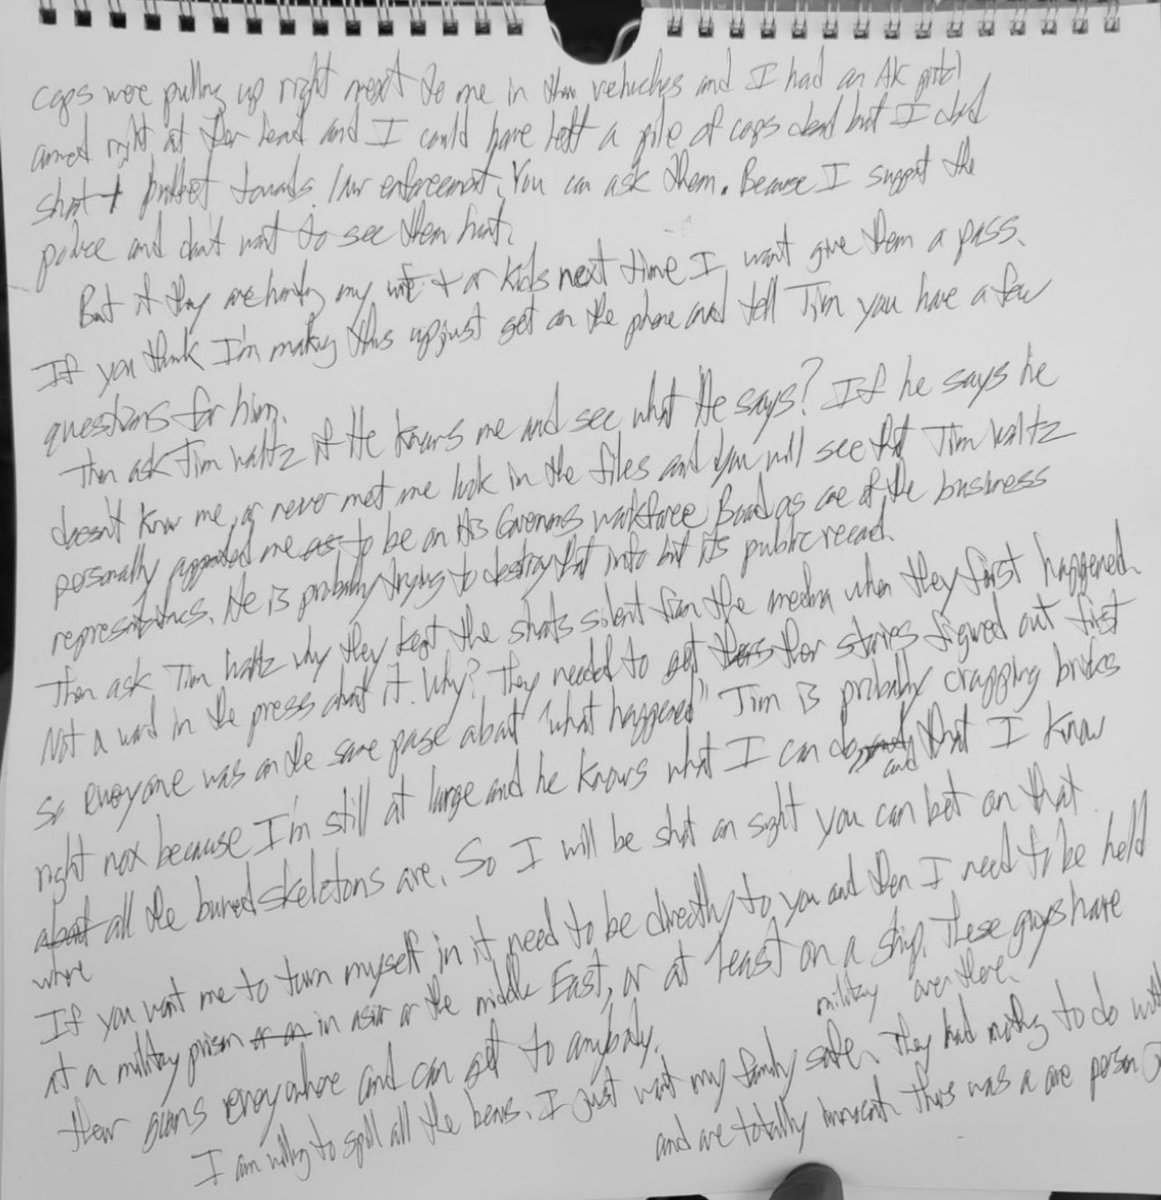 cops were pulling up right next to me in their vehichles and I had an AK pistol
aimed right at their head and I could have left a pile of cops dead but I didnt
shoot 1 bullet towards law enforcement. You can ask them. Because I support the
police and dont want to see them hurt.
But if they are hunting my wife + or kids next time I wont give them a pass.
If you think I'm making this up just get on the phone and tell Tim you have a few
questions for him.
Then ask Tim Waltz if He knows me and see what He says? If he says he
doesn't know me, or never met me look in the files and you will see that Tim Waltz
personally appointed me as to be on His Governors workforce Board as one of the business
representatives. He is probably trying to destroy that info but its public record.
Then ask Tim Waltz why they kept the shots silent from the media when they first happened.
Not a word in the press about it. Why? They needed to get their stories figured out first
so everyone was on the same page about "what happened" Tim is probably crapping bricks
right now because I'm still at large and he knows what I can do and that I know
about all the buried skeletons are. So I will be shot on sight you can bet on that.
where
If you want me to turn myself in it need to be directly to you and then I need to be held
at a military prison or on in asia or the middle East, or at least on a military ship. These guys have
their goons everywhere and can get to anybody. over there.
I am willing to spill all the beans. I just want my family safe. They had nothing to do with
and are totally innocent. This was a one person